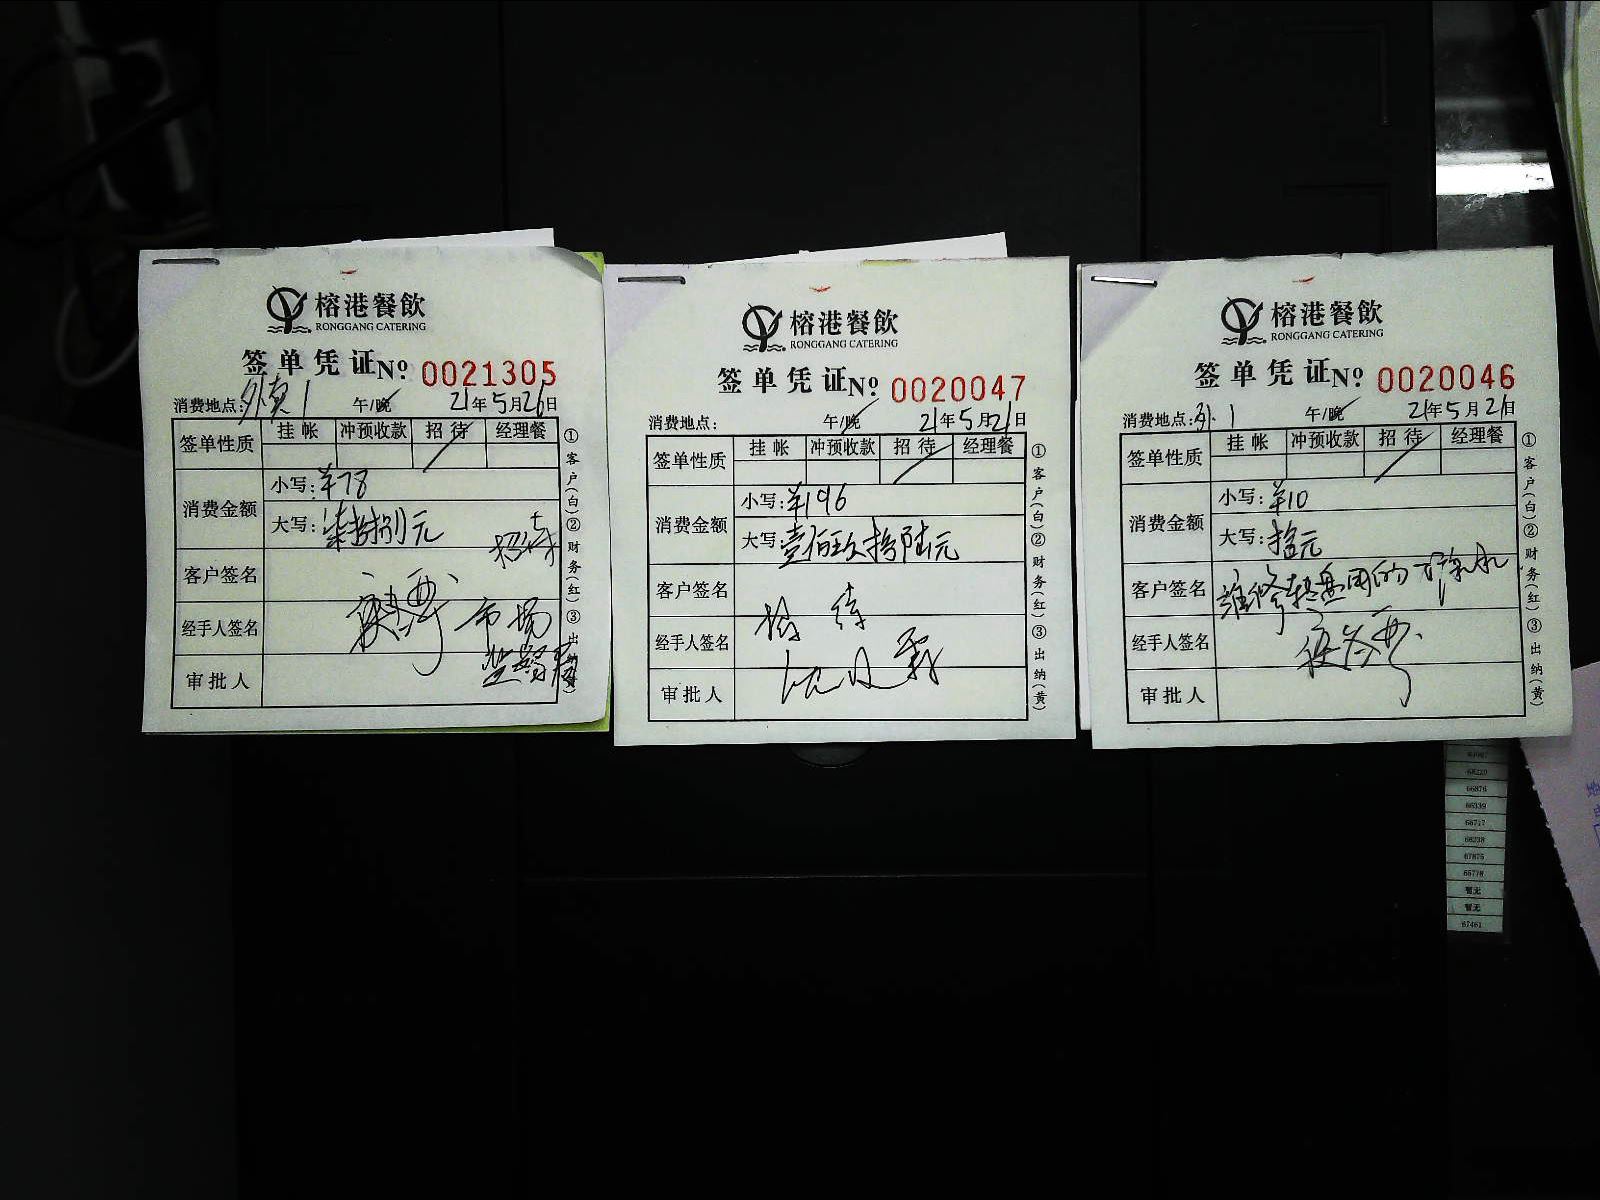 榕港餐飲
RONGGANG CATERING
签单凭证 № 0021305
消费地点: 1 午/晚 21年5月26日
签单性质 挂帐 冲预收款 招待 经理餐
消费金额 小写: ¥78
大写: 柒拾捌元
招待
客户签名
经手人签名
市场
监督
审批人
①客户(白)②财务(红)③出纳(黄)
榕港餐飲
RONGGANG CATERING
签单凭证 № 0020047
消费地点: 午/晚 21年5月21日
签单性质 挂帐 冲预收款 招待 经理餐
消费金额 小写: ¥196
大写: 壹佰玖拾陆元
客户签名
招待
经手人签名
审批人
①客户(白)②财务(红)③出纳(黄)
榕港餐飲
RONGGANG CATERING
签单凭证 № 0020046
消费地点: 外1 午/晚 21年5月21日
签单性质 挂帐 冲预收款 招待 经理餐
消费金额 小写: ¥10
大写: 拾元
客户签名 维修 用的
经手人签名
审批人
①客户(白)②财务(红)③出纳(黄)
66876
66339
66717
66238
67875
65778
暂无
暂无
67461